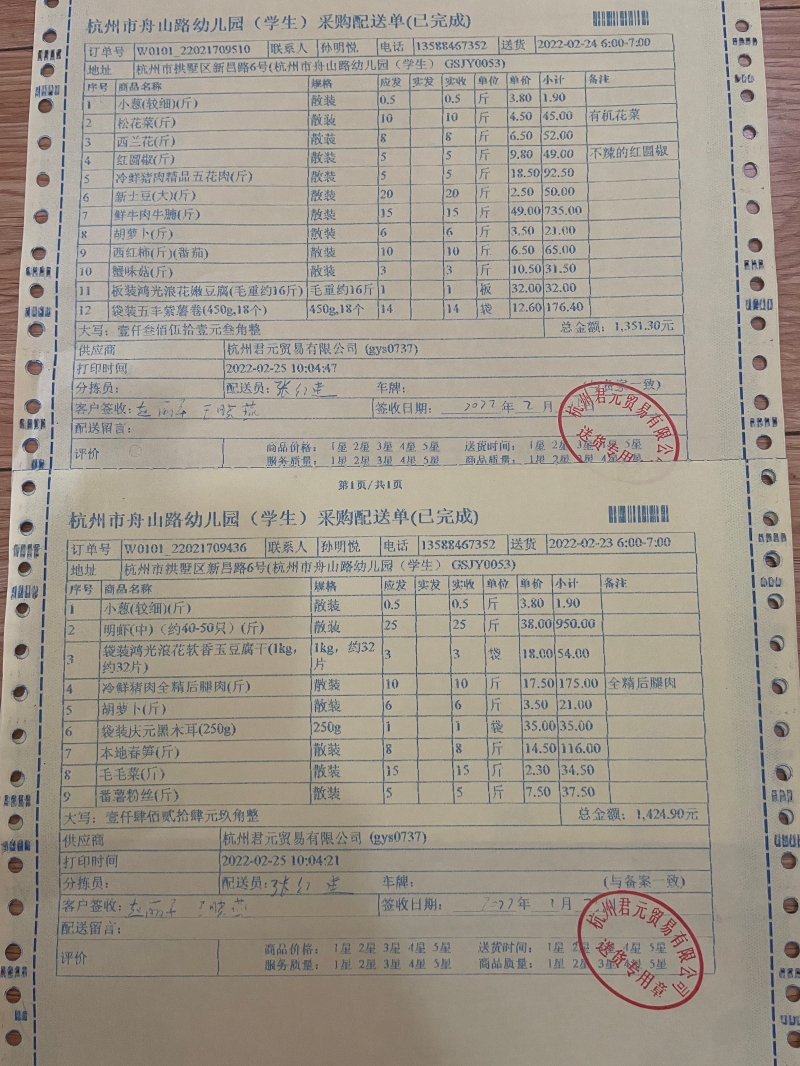 杭州市舟山路幼儿园（学生）采购配送单(已完成)
订单号 W0101_22021709510 联系人 孙明悦 电话 13588467352 送货 2022-02-24 6:00-7:00
地址 杭州市拱墅区新昌路6号(杭州市舟山路幼儿园（学生） GSJY0053)
序号 商品名称 规格 应发 实发 实收 单位 单价 小计 备注
1 小葱(较细)(斤) 散装 0.5 0.5 斤 3.80 1.90
2 松花菜(斤) 散装 10 10 斤 4.50 45.00 有机花菜
3 西兰花(斤) 散装 8 8 斤 6.50 52.00
4 红圆椒(斤) 散装 5 5 斤 9.80 49.00 不辣的红圆椒
5 冷鲜猪肉精品五花肉(斤) 散装 5 5 斤 18.50 92.50
6 新土豆(大)(斤) 散装 20 20 斤 2.50 50.00
7 鲜牛肉牛腩(斤) 散装 15 15 斤 49.00 735.00
8 胡萝卜(斤) 散装 6 6 斤 3.50 21.00
9 西红柿(斤)(番茄) 散装 10 10 斤 6.50 65.00
10 蟹味菇(斤) 散装 3 3 斤 10.50 31.50
11 板装鸿光浪花嫩豆腐(毛重约16斤) 毛重约16斤 1 1 板 32.00 32.00
12 袋装五丰紫薯卷(450g,18个) 450g,18个 14 14 袋 12.60 176.40
大写：壹仟叁佰伍拾壹元叁角整 总金额：1,351.30元
供应商 杭州君元贸易有限公司 (gys0737)
打印时间 2022-02-25 10:04:47
分拣员： 配送员：张红 车牌： 备案一致)
客户签收： 王晓燕 签收日期： 2022 年 2 月
配送留言：
评价 商品价格： 1星 2星 3星 4星 5星 送货时间： 1星 2星 5星
服务质量： 1星 2星 3星 4星 5星 商品质量： 1星 2星 3星
杭州君元贸易有限公
送货专用
第1页/共1页
杭州市舟山路幼儿园（学生）采购配送单(已完成)
订单号 W0101_22021709436 联系人 孙明悦 电话 13588467352 送货 2022-02-23 6:00-7:00
地址 杭州市拱墅区新昌路6号(杭州市舟山路幼儿园（学生） GSJY0053)
序号 商品名称 规格 应发 实发 实收 单位 单价 小计 备注
1 小葱(较细)(斤) 散装 0.5 0.5 斤 3.80 1.90
2 明虾(中)（约40-50只）(斤) 散装 25 25 斤 38.00 950.00
3 袋装鸿光浪花软香玉豆腐干(1kg，约32片) 1kg，约32片 3 3 袋 18.00 54.00
4 冷鲜猪肉全精后腿肉(斤) 散装 10 10 斤 17.50 175.00 全精后腿肉
5 胡萝卜(斤) 散装 6 6 斤 3.50 21.00
6 袋装庆元黑木耳(250g) 250g 1 1 袋 35.00 35.00
7 本地春笋(斤) 散装 8 8 斤 14.50 116.00
8 毛毛菜(斤) 散装 15 15 斤 2.30 34.50
9 番薯粉丝(斤) 散装 5 5 斤 7.50 37.50
大写：壹仟肆佰贰拾肆元玖角整 总金额：1,424.90元
供应商 杭州君元贸易有限公司 (gys0737)
打印时间 2022-02-25 10:04:21
分拣员： 配送员：张红 车牌： (与备案一致)
客户签收： 王晓燕 签收日期： 2022 年 月
配送留言：
评价 商品价格： 1星 2星 3星 4星 5星 送货时间： 1星 2星 4星 5星
服务质量： 1星 2星 3星 4星 5星 商品质量： 1星 2星 3星 5星
杭州君元贸易有限公司
送货专用章